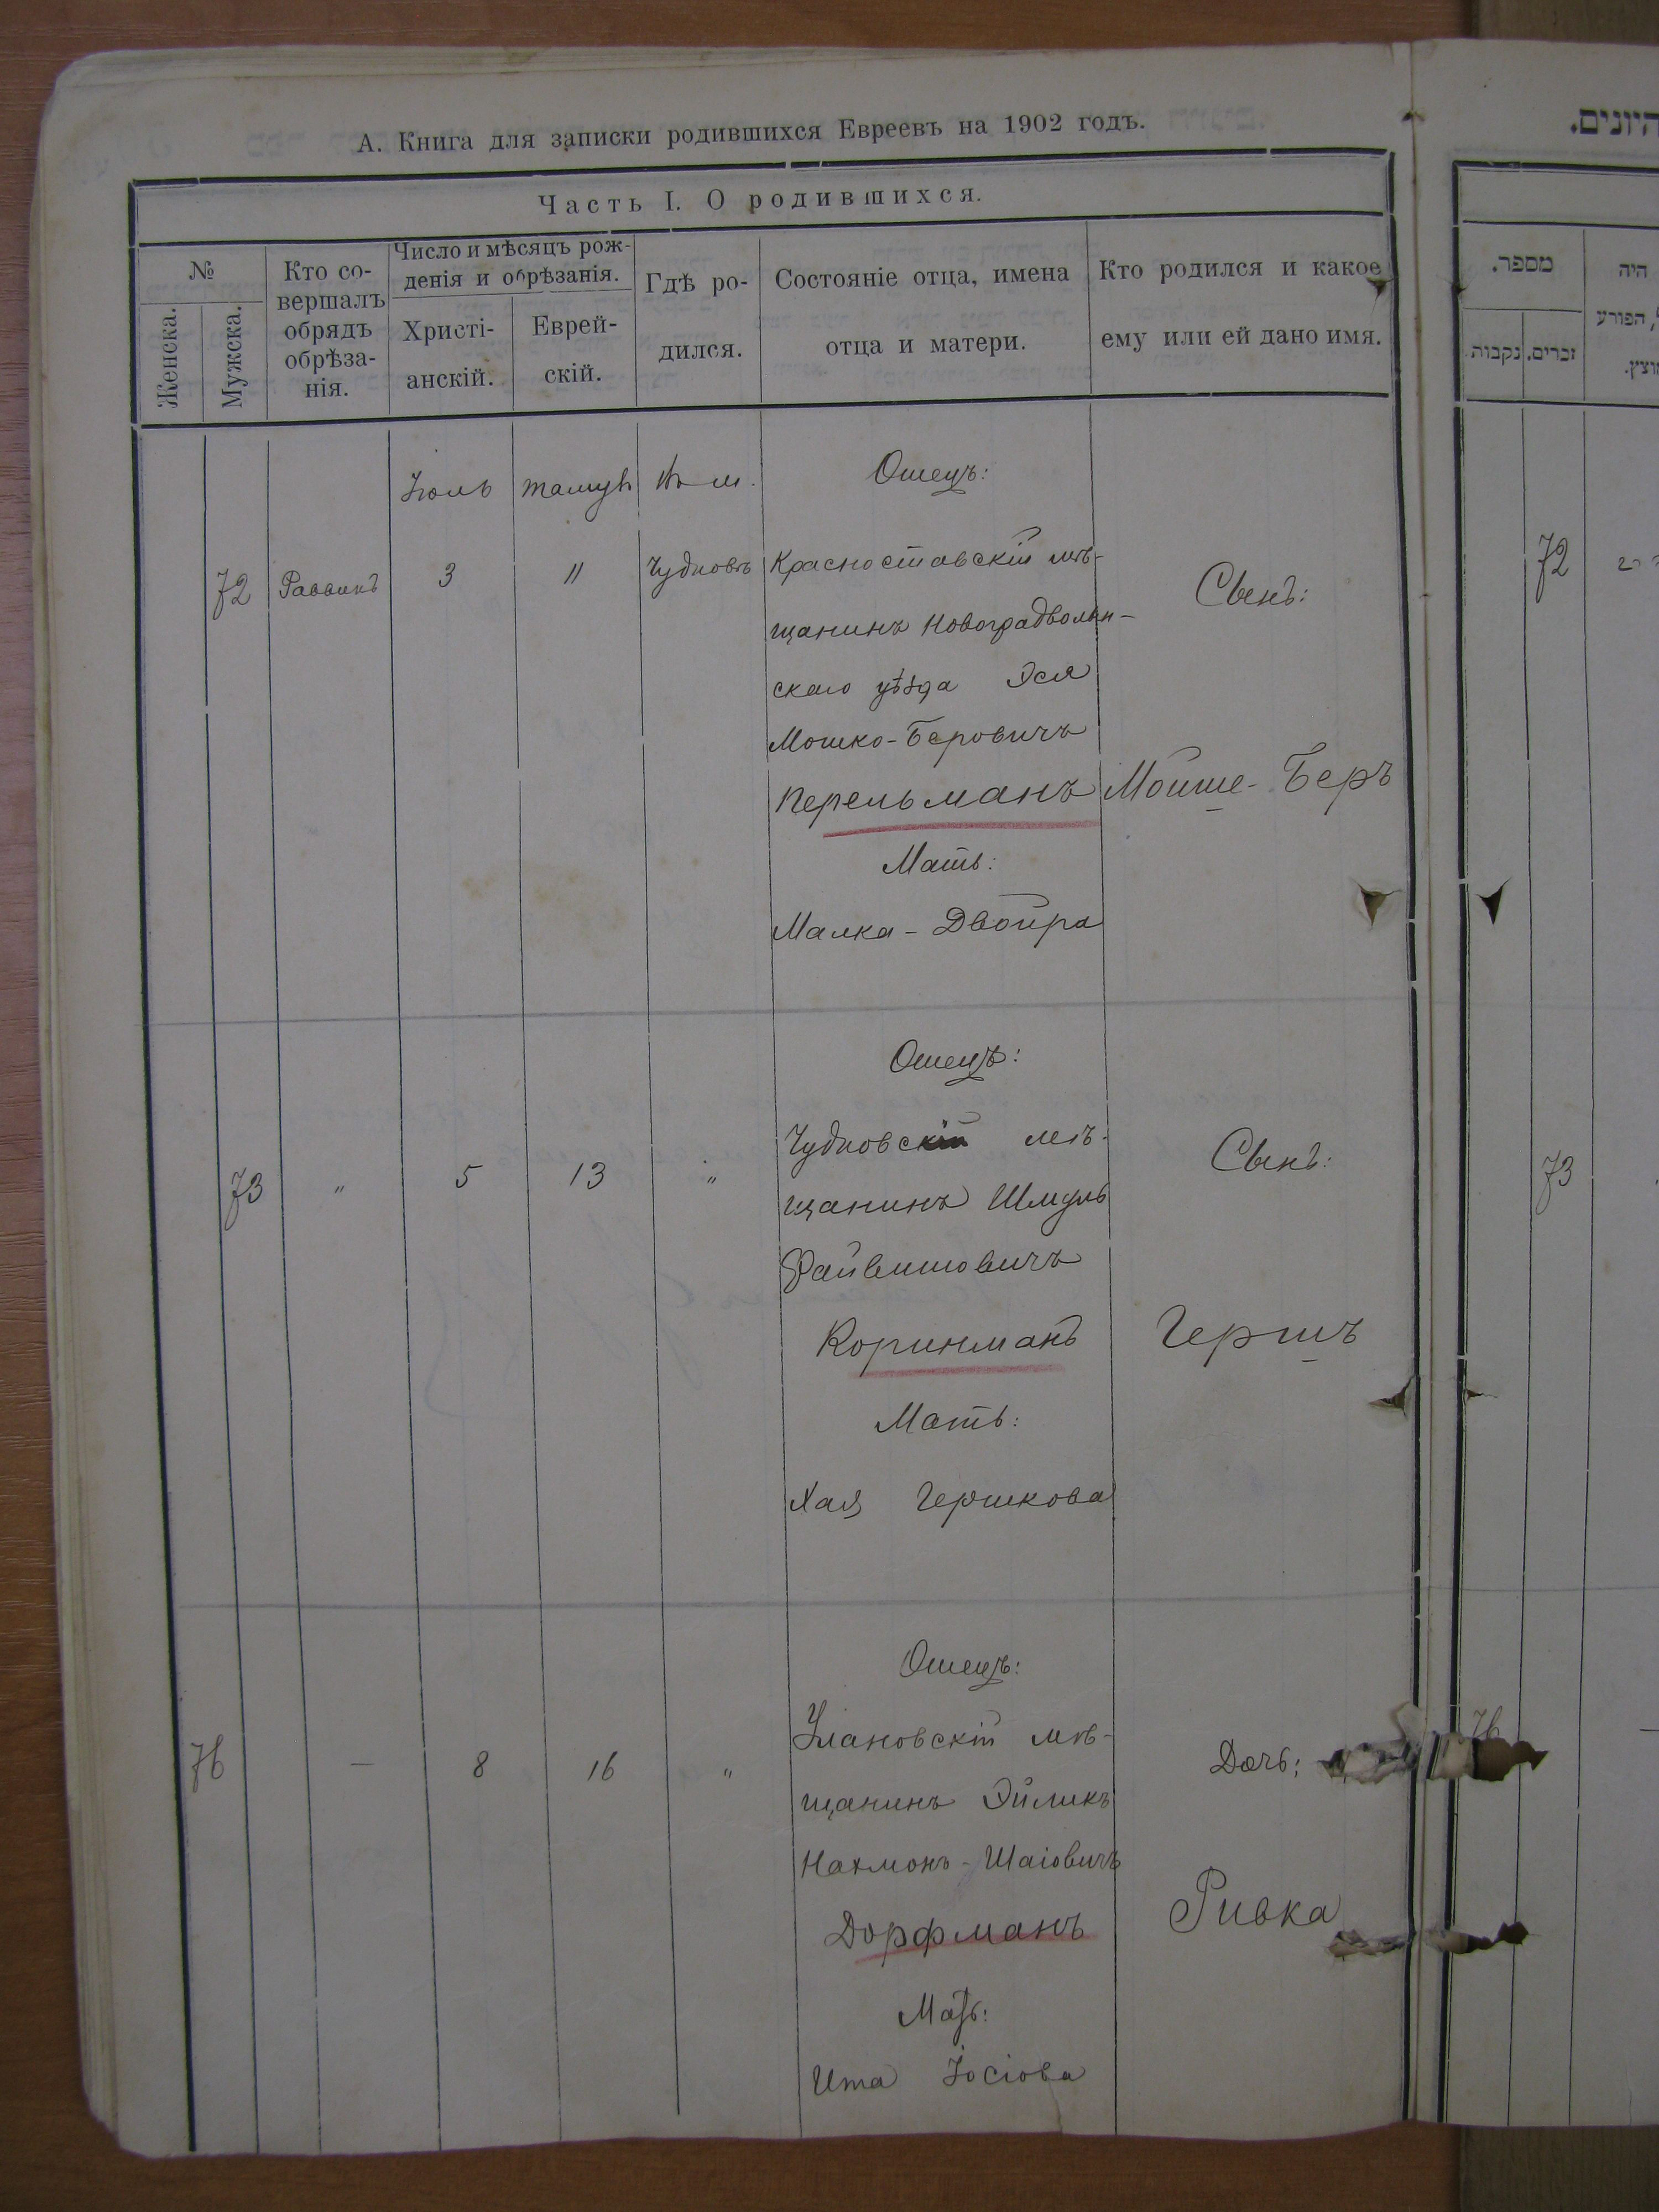 А. Книга для записки родившихся Евреевъ на 1902 годъ.
Часть I. О родившихся.
№
Женска.
Мужска.
Кто со-
вершалъ
обрядъ
обрѣза-
нія.
Число и мѣсяцъ рож-
денія и обрѣзанія.
Христі-
анскій.
Еврей-
скій.
Гдѣ ро-
дился.
Состояніе отца, имена
отца и матери.
Кто родился и какое
ему или ей дано имя.
Іюль
тамузъ
Въ м.
Отецъ:
72
Раввинъ
3
11
Чудновъ
Красноставскій мѣ-
щанинъ Новоградволын-
скаго уѣзда Эся
Мошко-Беровичъ
Перельманъ
Мать:
Малка-Двойра
Сынъ:
Мойше-Беръ
73
"
5
13
"
Отецъ:
Чудновскій мѣ-
щанинъ Шмуль
Файвишовичъ
Коринманъ
Мать:
Хая Гершкова
Сынъ:
Гершъ
76
—
8
16
"
Отецъ:
Улановскій мѣ-
щанинъ Эйликъ
Нахмонъ-Шаіовичъ
Дорфманъ
Мать:
Ита Іосіова
Дочь:
Ривка
מספר.
זכרים.
נקבות.
היה
הפורע
72
73
76